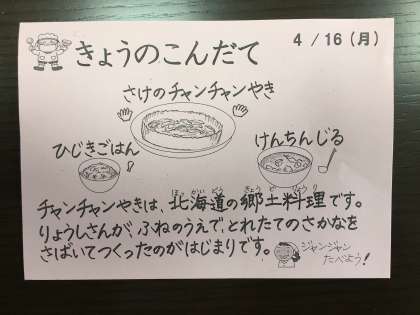 きょうのこんだて 4/16(月)
さけのチャンチャンやき
ひじきごはん
けんちんじる
チャンチャンやきは、北海道の郷土料理です。
りょうしさんが、ふねのうえで、とれたてのさかなを
さばいてつくったのがはじまりです。
ジャンジャン
たべよう!